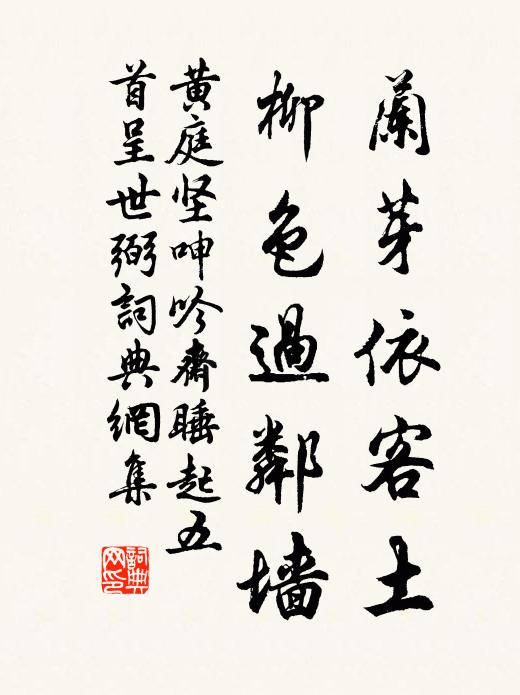 蘭芽依客土
柳色過鄰墻
黃庭坚呻吟齋睡起五
首呈世弼詞典網集
詞典网印